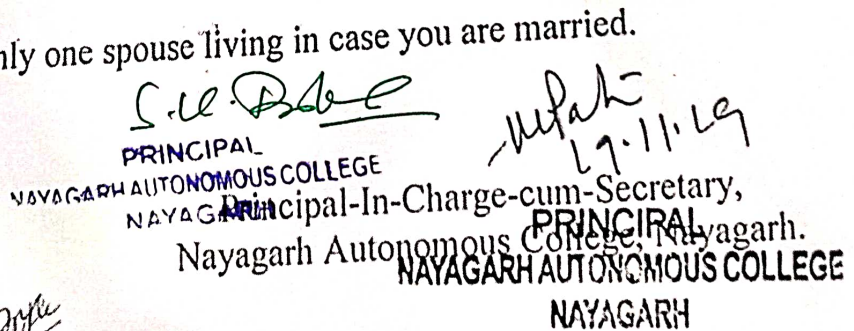 nly one spouse living in case you are married.
PRINCIPAL
NAYAGARH AUTONOMOUS COLLEGE
NAYAGARH
Principal-In-Charge-cum-Secretary,
Nayagarh Autonomous College, Nayagarh.
PRINCIPAL
NAYAGARH AUTONOMOUS COLLEGE
NAYAGARH